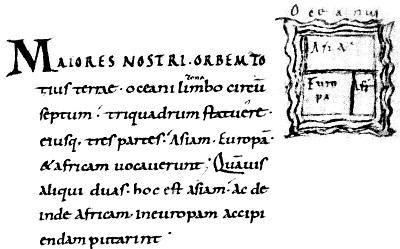 Oceanus
Asia
Europa
Afri
MAIORES NOSTRI · ORBEM TO
tius terrae · oceani limbo circū
septum · triquadrum statuere ·
eiusq, tres partes · Asiam · Europā ·
& africam vocaverunt · Quāvis
aliqui duas · hoc est asiam · ac de
inde africam · in europam accipi
endam putarint ·